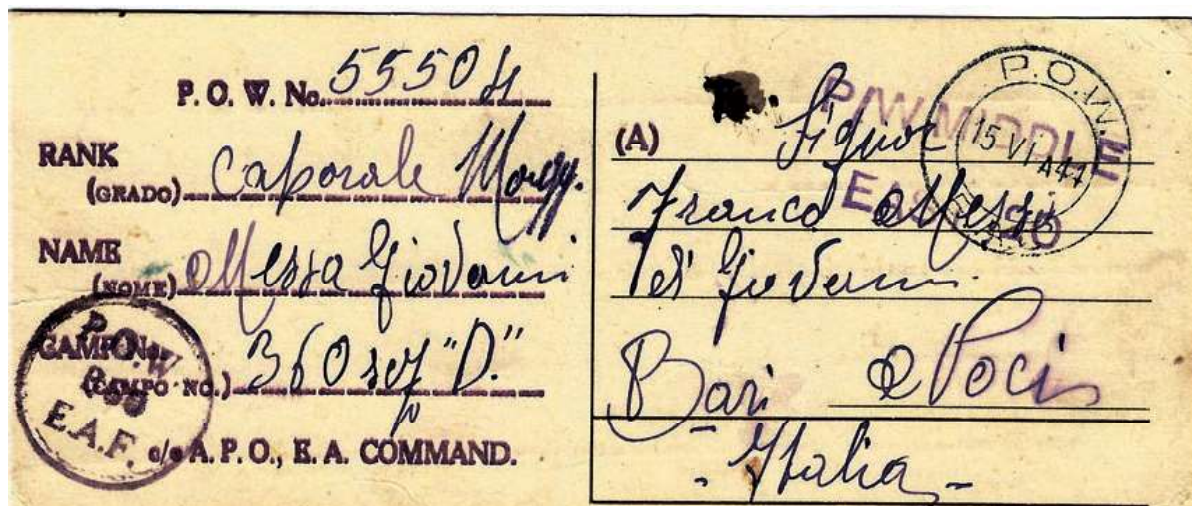 P. O. W. No. 55504
RANK
(GRADO) Caporale Magg.
NAME
(NOME) Messa Giovanni
CAMP No.
(CAMPO NO.) 360 "D."
c/o A. P. O., E. A. COMMAND.
P.O.W
E.A.F.
(A) Signor
Franco Messa
di Giovanni
Bari Noci
- Italia -
P/W MIDDLE
EAST
P.O.W.E
15 VI A44